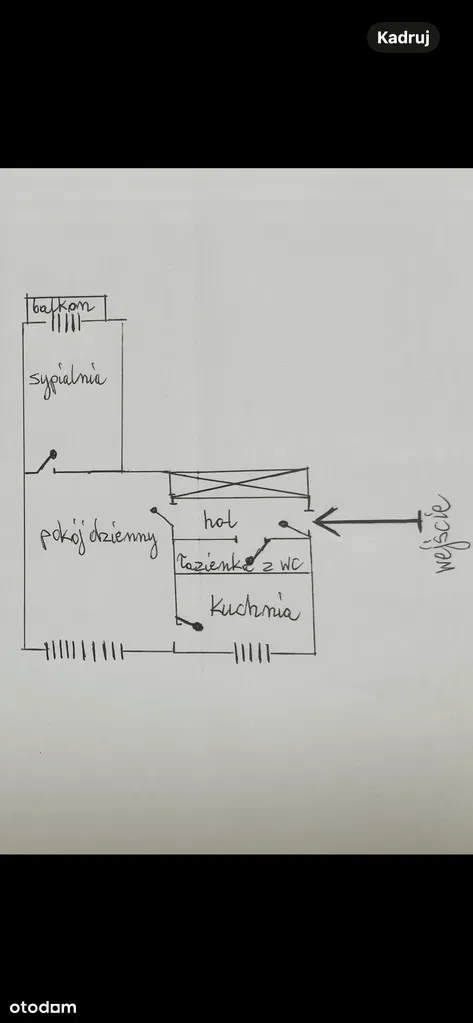 Kadruj
balkon
sypialnia
pokój dzienny
hol
wejście
łazienka z WC
Kuchnia
otodom